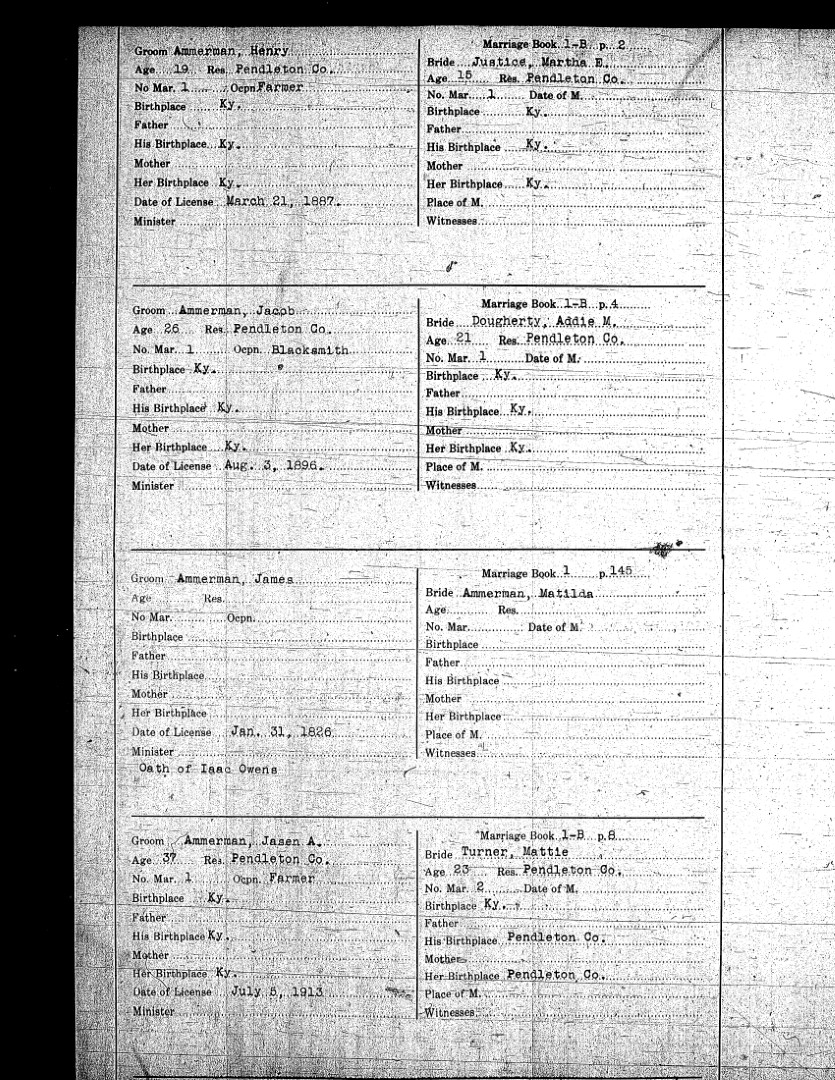 Groom Ammerman, Henry
Age 19 Res. Pendleton Co.
No Mar. 1 Ocpn. Farmer
Birthplace Ky.
Father
His Birthplace Ky.
Mother
Her Birthplace Ky.
Date of License March 21, 1887.
Minister
Marriage Book 1-B p. 2
Bride Justice, Martha E.
Age 15 Res. Pendleton Co.
No. Mar. 1 Date of M.
Birthplace Ky.
Father
His Birthplace Ky.
Mother
Her Birthplace Ky.
Place of M.
Witnesses
Groom Ammerman, Jacob
Age 26 Res. Pendleton Co.
No. Mar. 1 Ocpn. Blacksmith
Birthplace Ky.
Father
His Birthplace Ky.
Mother
Her Birthplace Ky.
Date of License Aug. 3, 1896.
Minister
Marriage Book 1-B p. 4
Bride Dougherty, Addie M.
Age 21 Res. Pendleton Co.
No. Mar. 1 Date of M.
Birthplace Ky.
Father
His Birthplace Ky.
Mother
Her Birthplace Ky.
Place of M.
Witnesses
Groom Ammerman, James
Age Res.
No Mar. Ocpn.
Birthplace
Father
His Birthplace
Mother
Her Birthplace
Date of License Jan. 31, 1826
Minister
Oath of Isaac Owens
Marriage Book 1 p. 145
Bride Ammerman, Matilda
Age Res.
No. Mar. Date of M.
Birthplace
Father
His Birthplace
Mother
Her Birthplace
Place of M.
Witnesses
Groom Ammerman, Jasen A.
Age 37 Res. Pendleton Co.
No. Mar. 1 Ocpn. Farmer
Birthplace Ky.
Father
His Birthplace Ky.
Mother
Her Birthplace Ky.
Date of License July 5, 1913
Minister
Marriage Book 1-B p. 8
Bride Turner, Mattie
Age 23 Res. Pendleton Co.
No. Mar. 2 Date of M.
Birthplace Ky.
Father
His Birthplace Pendleton Co.
Mother
Her Birthplace Pendleton Co.
Place of M.
Witnesses